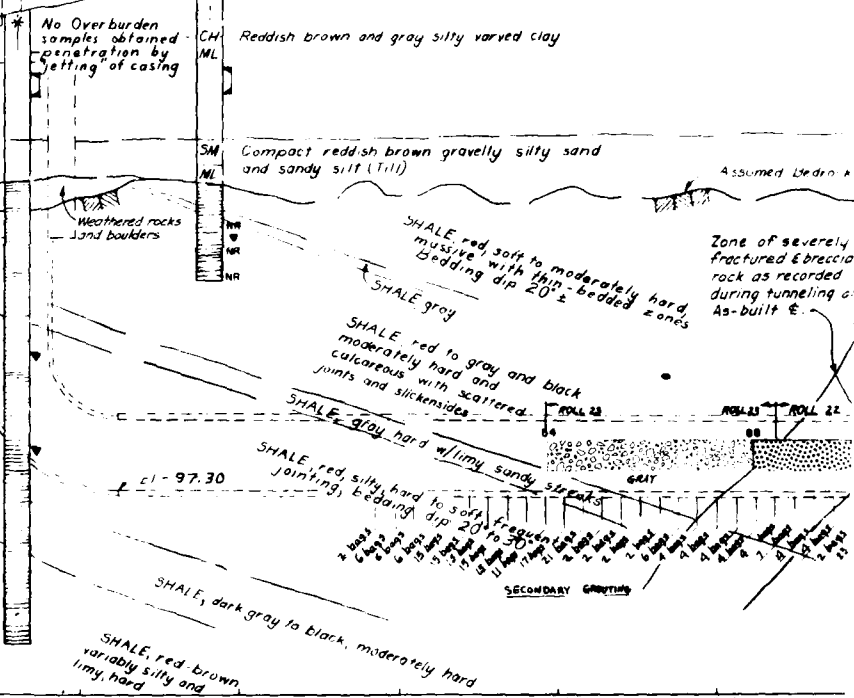 *
No Overburden
samples obtained
penetration by
"jetting" of casing
CH
ML
Reddish brown and gray silty varved clay
SM
ML
Compact reddish brown gravelly silty sand
and sandy silt (Till)
Assumed Bedrock
Weathered rocks
and boulders
NR
NR
NR
SHALE, red, soft to moderately hard,
massive with thin-bedded zones
Bedding dip 20°±
SHALE gray
Zone of severely
fractured & breccia
rock as recorded
during tunneling
As-built ℄.
SHALE, red to gray and black
moderately hard and
calcareous with scattered
joints and slickensides
ROLL 23
ROLL 23
ROLL 22
SHALE, gray hard w/limy sandy streaks
GRAY
SHALE, red, silty, hard to soft, frequent
jointing, bedding dip 20° to 30°
el - 97.30
2 bags
6 bags
6 bags
6 bags
15 bags
SECONDARY GROUTING
SHALE, dark gray to black, moderately hard
SHALE, red-brown
variably silty and
limy, hard